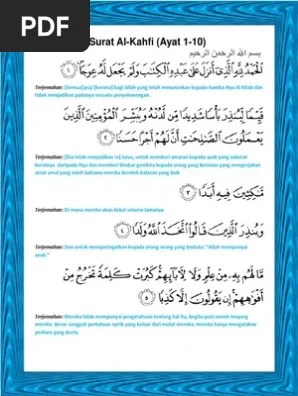 PDF
Surat Al-Kahfi (Ayat 1-10)
بسم الله الرحمن الرحيم
الْحَمْدُ لِلَّهِ الَّذِي أَنزَلَ عَلَىٰ عَبْدِهِ الْكِتَابَ وَلَمْ يَجْعَل لَّهُ عِوَجًا ١
Terjemahan: [Semua][puji] [hanya] [bagi] Allah yang telah menurunkan kepada hamba-Nya Al Kitab dan
tidak menjadikan padanya sesuatu penyelewengan.
قَيِّمًا لِّيُنذِرَ بَأْسًا شَدِيدًا مِّن لَّدُنْهُ وَيُبَشِّرَ الْمُؤْمِنِينَ الَّذِينَ
يَعْمَلُونَ الصَّالِحَاتِ أَنَّ لَهُمْ أَجْرًا حَسَنًا ٢
Terjemahan: [Dia telah menjadikan ia] lurus, untuk memberi amaran kepada
daripada-Nya dan memberi khabar gembira kepada orang yang beriman yang mengerjakan
amal amal yang soleh bahawa mereka beroleh balasan yang baik
مَّاكِثِينَ فِيهِ أَبَدًا ٣
Terjemahan: Di mana mereka akan kekal selama lamanya
وَيُنذِرَ الَّذِينَ قَالُوا اتَّخَذَ اللَّهُ وَلَدًا ٤
Terjemahan: Dan untuk memperingatkan kepada orang orang yang berkata: "Allah mempunyai
anak."
مَّا لَهُم بِهِ مِنْ عِلْمٍ وَلَا لِآبَائِهِمْ كَبُرَتْ كَلِمَةً تَخْرُجُ مِنْ
أَفْوَاهِهِمْ إِن يَقُولُونَ إِلَّا كَذِبًا ٥
Terjemahan: Mereka tidak mempunyai pengetahuan tentang hal itu, begitu pula nenek moyang
mereka. Besar sungguh perkataan yang keluar dari mulut mereka; mereka hanya mengatakan
perkara yang dusta.